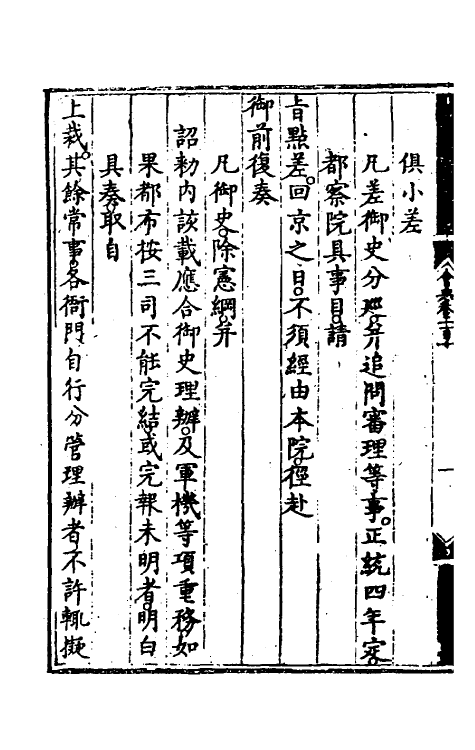 俱小差
凡差御史分廵。并追問審理等事。正統四年定。
都察院具事目。請
旨點差。回京之日。不須經由本院。徑赴
御前復奏
凡御史除憲綱。并
詔勑内該載應合御史理辦。及軍機等項重務。如
果都布按三司不能完結。或完報未明者。明白
具奏取自
上裁。其餘常事。各衙門自行分管理辦者。不許輒擬